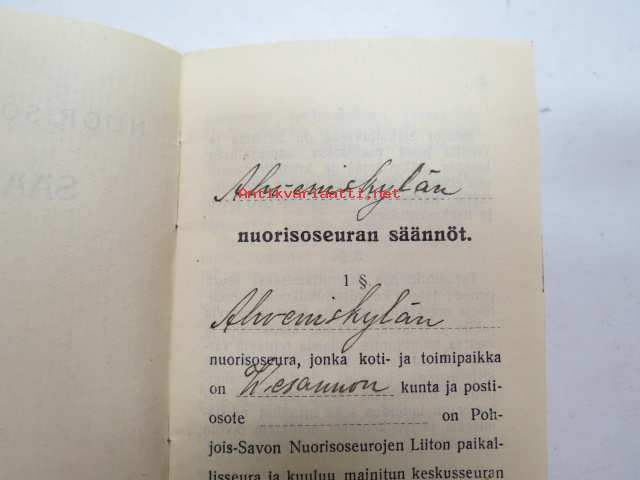 NUORISO
SÄÄ
Ahveniskylän
Antikvariaatti.net
nuorisoseuran säännöt.
1 §
Ahveniskylän
nuorisoseura, jonka koti- ja toimipaikka
on Wesannon kunta ja posti-
osote on Poh-
jois-Savon Nuorisoseurojen Liiton paikal-
lisseura ja kuuluu mainitun keskusseuran